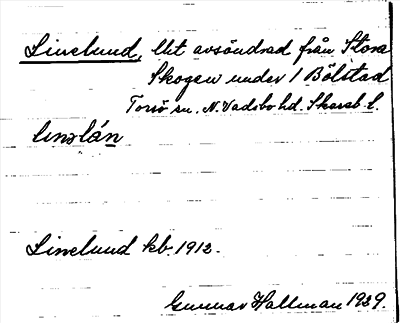 Linelund, lht avsöndrad från Stora
Skogen under 1 Bölstad
Torsö sn. N. Vadsbo hd. Skarab. l.
linəlán
Linelund kb. 1912.
Gunnar Hallman 1929.